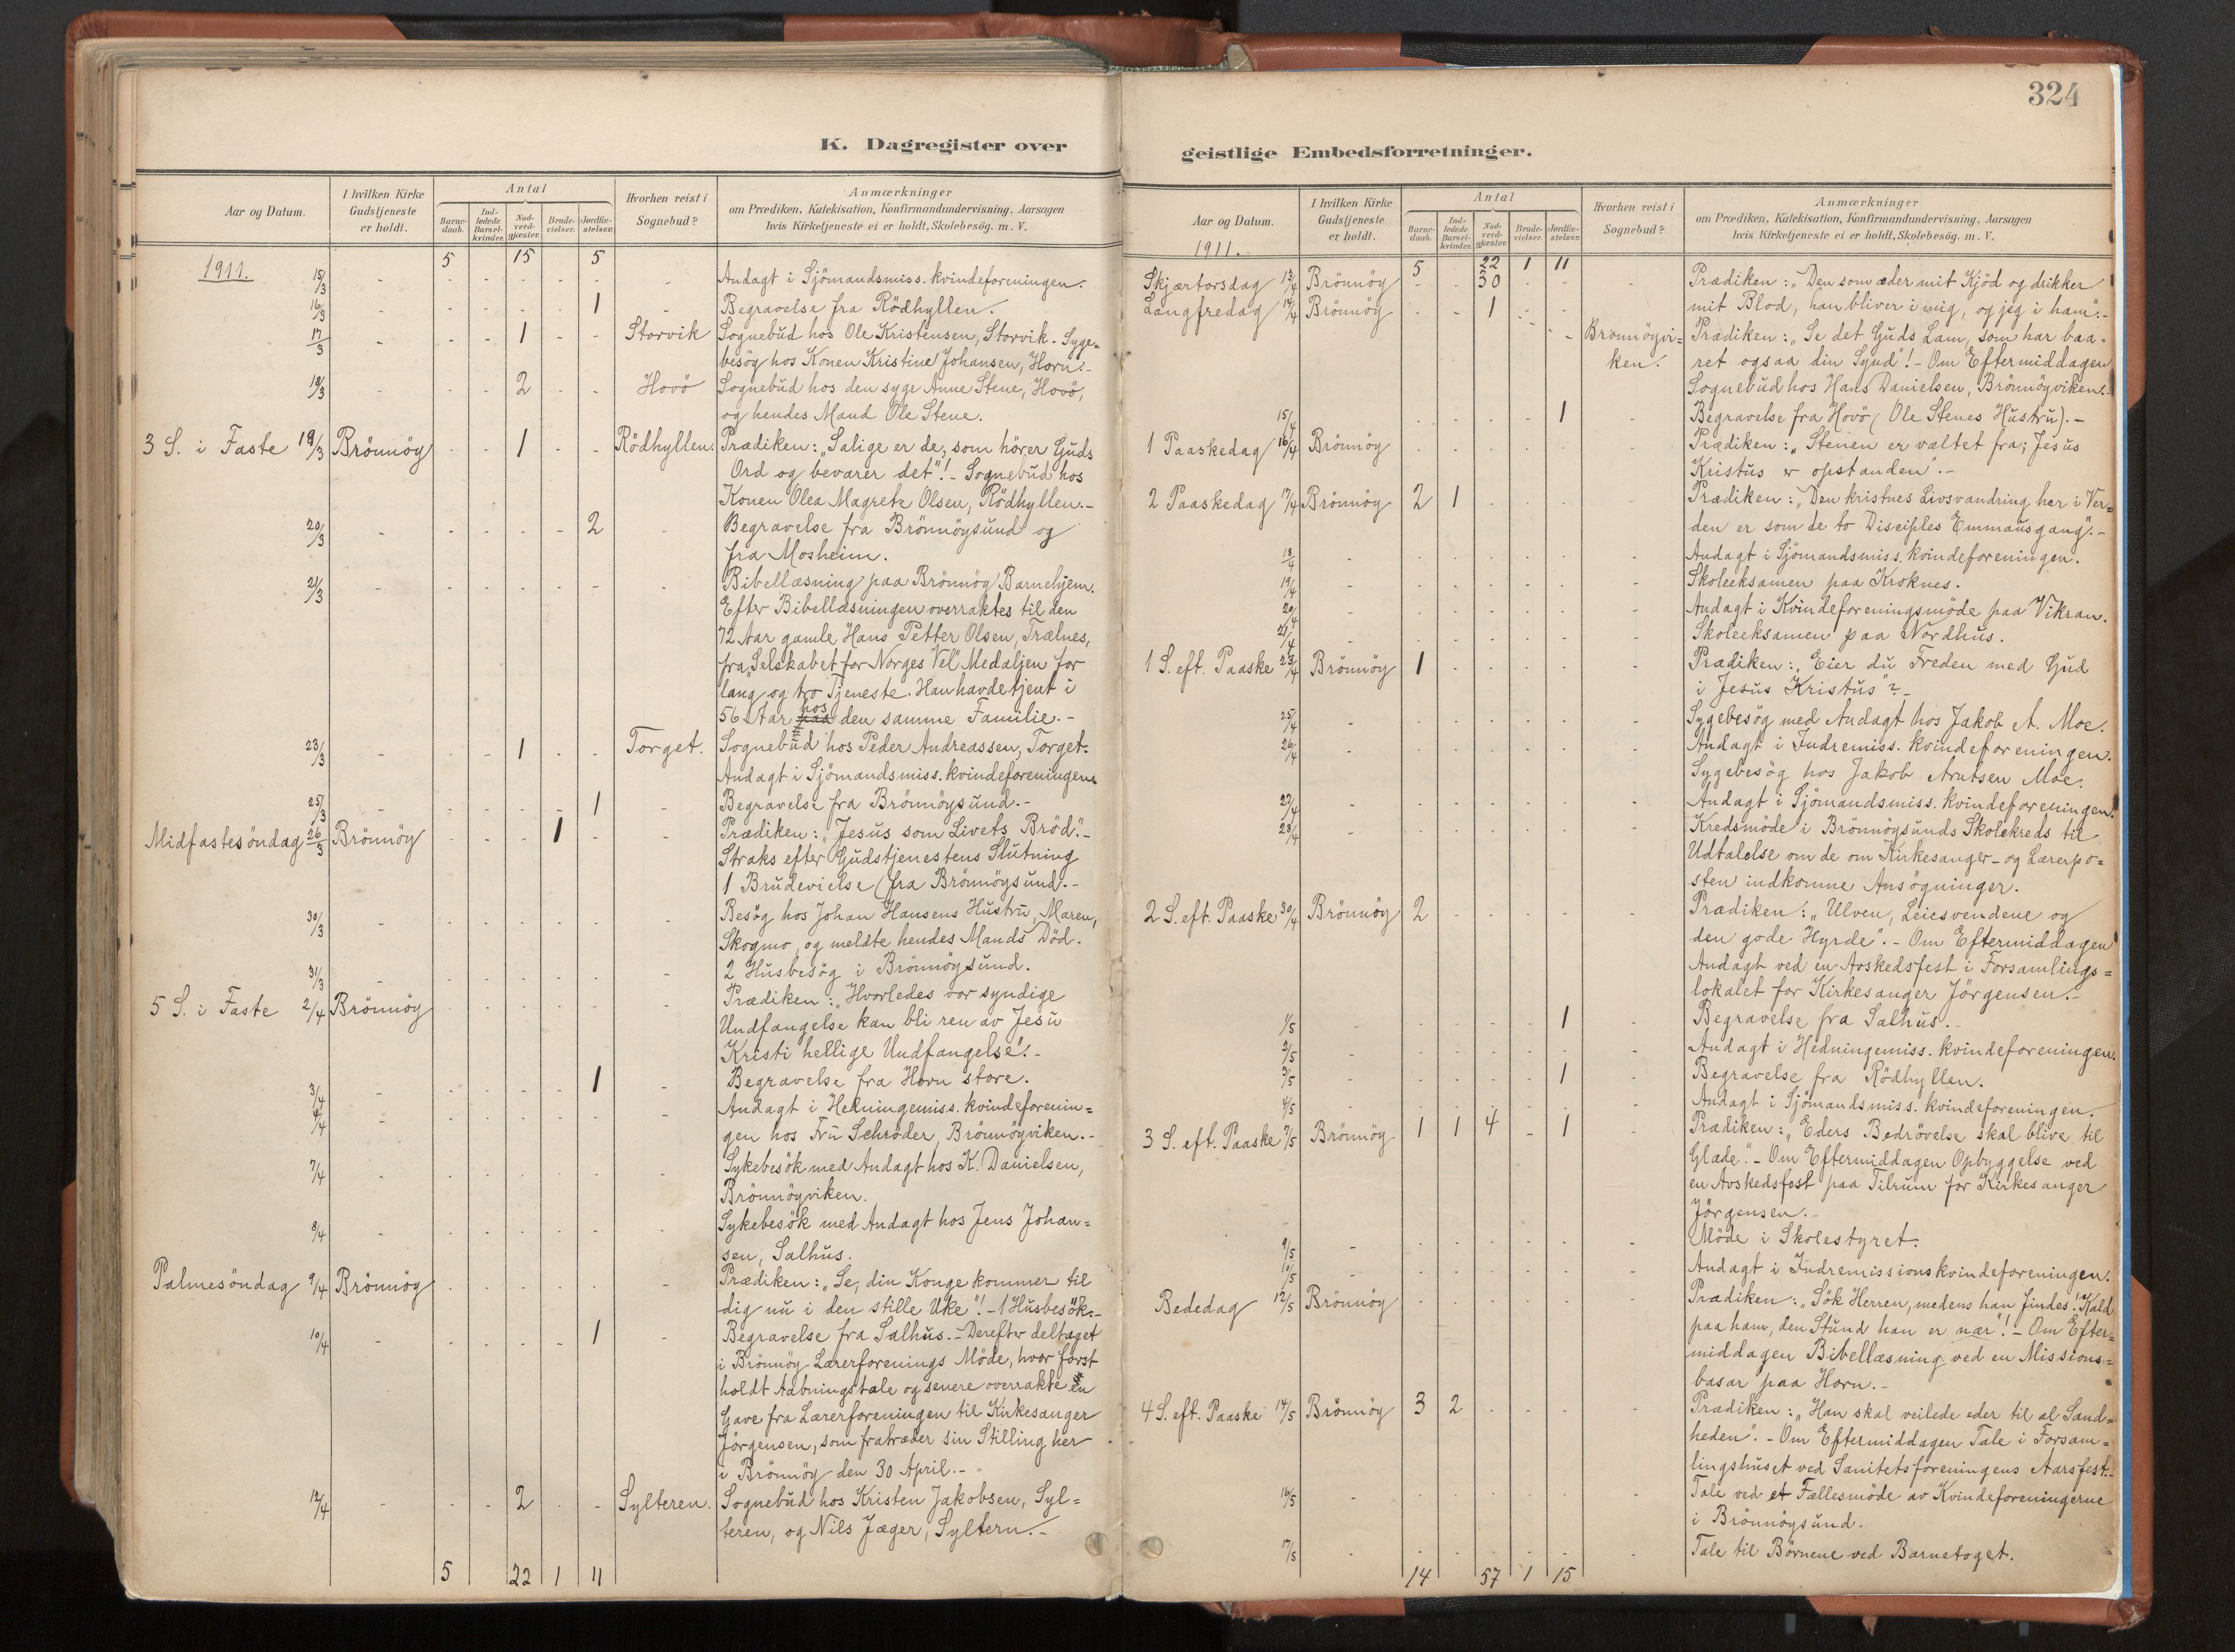 324
K. Dagregister over
Aar og Datum.
I hvilken Kirke Gudstjeneste er holdt.
Antal
Barne-daab.
Ind-ledede Barsel-kvinder.
Nad-verd-gjæster.
Brude-vielser.
Jordfæ-stelser.
Hvorhen reist i Sognebud?
Anmærkninger
om Prædiken, Katekisation, Konfirmandundervisning, Aarsagen
hvis Kirketjeneste ei er holdt, Skolebesög. m. V.
5 15 5
1911. 15/3 - - - - - - - Andagt i Sjömandsmiss. kvindeforeningen.
16/3 - - - - - 1 - Begravelse fra Rödhyllen.
17/3 - - - 1 - - Storvik Sognebud hos Ole Kristensen, Storvik. Syge=
besög hos Konen Kristine Johansen, Horn.-
18/3 - - 2 - - Hovö Sognebud hos den syge Anne Stene, Hovö,
og hendes Mand Ole Stene.
3 S. i Faste 19/3 Brönnöy - - 1 - - Rödhyllen. Prædiken: "Salige er de, som hörer Guds
Ord og bevarer det"! - Sognebud hos
Konen Olea Magrete Olsen, Rödhyllen.-
20/3 - - - - - 2 - Begravelse fra Brönnöysund og
fra Mosheim.
21/3 - - - - - - - Bibellæsning paa Brönnöy Barnehjem.
Efter Bibellæsningen overraktes til den
72 Aar gamle Hans Petter Olsen, Trælnes,
fra "Selskabet for Norges Vel" Medaljen for
lang og tro Tjeneste. Han havde tjent i
56 Aar paa hos den samme Familie.-
23/3 - - - 1 - - Torget. Sognebud hos Peder Andreassen, Torget.
Andagt i Sjömandsmiss. kvindeforeningen.
25/3 - - - - - 1 - Begravelse fra Brönnöysund.-
Midfastesöndag 26/3 Brönnöy - - - 1 - - Prædiken: "Jesus som Livets Bröd".-
Straks efter Gudstjenestens Slutning
1 Brudevielse (fra Brönnöysund.-
30/3 - - - - - - - Besög hos Johan Hansens Hustru, Maren,
Skogmo, og meldte hendes Mands Död.
31/3 - - - - - - - 2 Husbesög i Brönnöysund.
5 S. i Faste 2/4 Brönnöy - - - - - - Prædiken: "Hvorledes vor syndige
Undfangelse kan bli ren av Jesu
Kristi hellige Undfangelse".-
3/4 - - - - - 1 - Begravelse fra Horn store.
4/4 - - - - - - - Andagt i Hedningemiss. kvindeforenin=
gen hos Fru Schröder, Brönnöyviken.-
7/4 - - - - - - - Sykebesök med Andagt hos K. Danielsen,
Brönnöyviken.
8/4 - - - - - - - Sykebesök med Andagt hos Jens Johan=
sen, Salhus.
Palmesöndag 9/4 Brönnöy - - - - - - Prædiken: "Se, din Konge kommer til
dig nu i den stille Uke"! - 1 Husbesök.-
10/4 - - - - - 1 - Begravelse fra Salhus.- Derefter deltaget
i Brönnöy Lærerforenings Möde, hvor först
holdt Aabningstale og senere overrakte en
Gave fra Lærerforeningen til Kirkesanger
Jörgensen, som fratræder sin Stilling her
i Brönnöy den 30 April.-
12/4 - - - 2 - - Sylteren. Sognebud hos Kristen Jakobsen, Syl=
teren, og Nils Jæger, Syltern.-
5 22 1 11
geistlige Embedsforretninger.
Aar og Datum.
I hvilken Kirke Gudstjeneste er holdt.
Antal
Barne-daab.
Ind-ledede Barsel-kvinder.
Nad-verd-gjæster.
Brude-vielser.
Jordfæ-stelser.
Hvorhen reist i Sognebud?
Anmærkninger
om Prædiken, Katekisation, Konfirmandundervisning, Aarsagen
hvis Kirketjeneste ei er holdt, Skolebesög. m. V.
1911.-
5 22 1 11
Skjærtorsdag 13/4 Brönnöy - - 30 - - - Prædiken: "Den som æder mit Kjöd og drikker
mit Blod, han bliver i mig, og jeg i ham".-
Langfredag 14/4 Brönnöy - - 1 - - Brönnöyvi=
ken. Prædiken: "Se det Guds Lam, som har baa=
ret ogsaa din Synd"! - Om Eftermiddagen
Sognebud hos Hans Danielsen, Brönnöyviken.-
15/4 - - - - 1 - Begravelse fra Hovö (Ole Stenes Hustru).-
1 Paaskedag 16/4 Brönnöy - - - - - - Prædiken: "Stenen er væltet fra; Jesus
Kristus er opstanden".-
2 Paaskedag 17/4 Brönnöy 2 1 - - - - Prædiken: "Den kristnes Livsvandring her i Ver=
den er som de to Disciples Emmausgang".-
18/4 - - - - - - - Andagt i Sjömandsmiss. kvindeforeningen.
19/4 - - - - - - - Skoleeksamen paa Kroknes.
20/4 - - - - - - - Andagt i Kvindeforeningsmöde paa Vikran.
21/4 - - - - - - - Skoleeksamen paa Nordhus.
1 S. eft. Paaske 23/4 Brönnöy 1 - - - - - Prædiken: "Eier du Freden med Gud
i Jesus Kristus"?-
25/4 - - - - - - - Sygebesög med Andagt hos Jakob A. Moe.
26/4 - - - - - - - Andagt i Indremiss. kvindeforeningen.
Sygebesög hos Jakob Arntsen Moe.
27/4 - - - - - - - Andagt i Sjömandsmiss. kvindeforeningen.
28/4 - - - - - - - Kredsmöde i Brönnöysunds Skolekreds til
Udtalelse om de om Kirkesanger- og Lærerpo=
sten indkomne Ansögninger.
2 S. eft. Paaske 30/4 Brönnöy 2 - - - - - Prædiken: "Ulven, Leiesvendene og
den gode Hyrde".- Om Eftermiddagen
Andagt ved en Avskedsfest i Forsamlings=
lokalet for Kirkesanger Jörgensen.-
1/5 - - - - - 1 - Begravelse fra Salhus.-
2/5 - - - - - - - Andagt i Hedningemiss. kvindeforeningen.
3/5 - - - - - 1 - Begravelse fra Rödhyllen.
4/5 - - - - - - - Andagt i Sjömandsmiss. kvindeforeningen.
3 S. eft. Paaske 7/5 Brönnöy 1 1 4 - 1 - Prædiken: "Eders Bedrövelse skal blive til
Glæde".- Om Eftermiddagen Opbyggelse ved
en Avskedsfest paa Tilrum for Kirkesanger
Jörgensen.-
9/5 - - - - - - - Möde i Skolestyret.
10/5 - - - - - - - Andagt i Indremissionskvindeforeningen.
Bededag 12/5 Brönnöy - - - - - - Prædiken: "Sök Herren, medens han findes! Kald
paa ham, den Stund han er nær"! - Om Efter=
middagen Bibellæsning ved en Missions=
basar paa Horn.-
4 S. eft. Paaske 14/5 Brönnöy 3 2 - - - - Prædiken: "Han skal veilede eder til al Sand=
heden".- Om Eftermiddagen Tale i Forsam=
lingshuset ved Sanitetsforeningens Aarsfest.-
16/5 - - - - - - - Tale ved et Fællesmöde av Kvindeforeningerne
i Brönnöysund.
17/5 - - - - - - - Tale til Börnene ved Barnetoget.
14 57 1 15